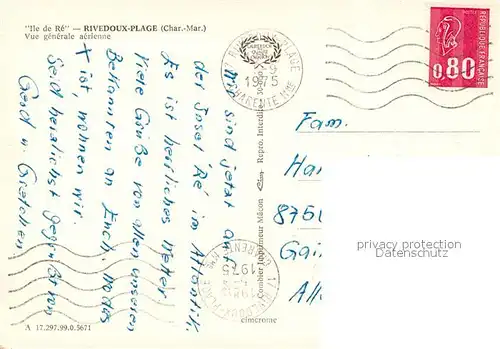 "Ile de Ré" — RIVEDOUX-PLAGE (Char.-Mar.)
Vue générale aérienne
Wir sind jetzt auf
der Insel Ré im Atlantik.
Es ist herrliches Wetter
Viele Grüße von allen unseren
Bekannten an Euch. Wo das
X ist, wohnen wir.
Seid herzlichst gegrüßt von
Gerd u. Gretchen
A 17.297.99.0.5671
Combier Imprimeur Mâcon
Cim
Repro. Interdite
cimcrome
PLAGE
1975
CHARENTE Mme
17 RIVEDOUX-PLAGE
1975
CHARENTE Mme
0,80
RÉPUBLIQUE FRANÇAISE
Fam.
Han
875
Gai
Al
privacy protection
VersandKontor